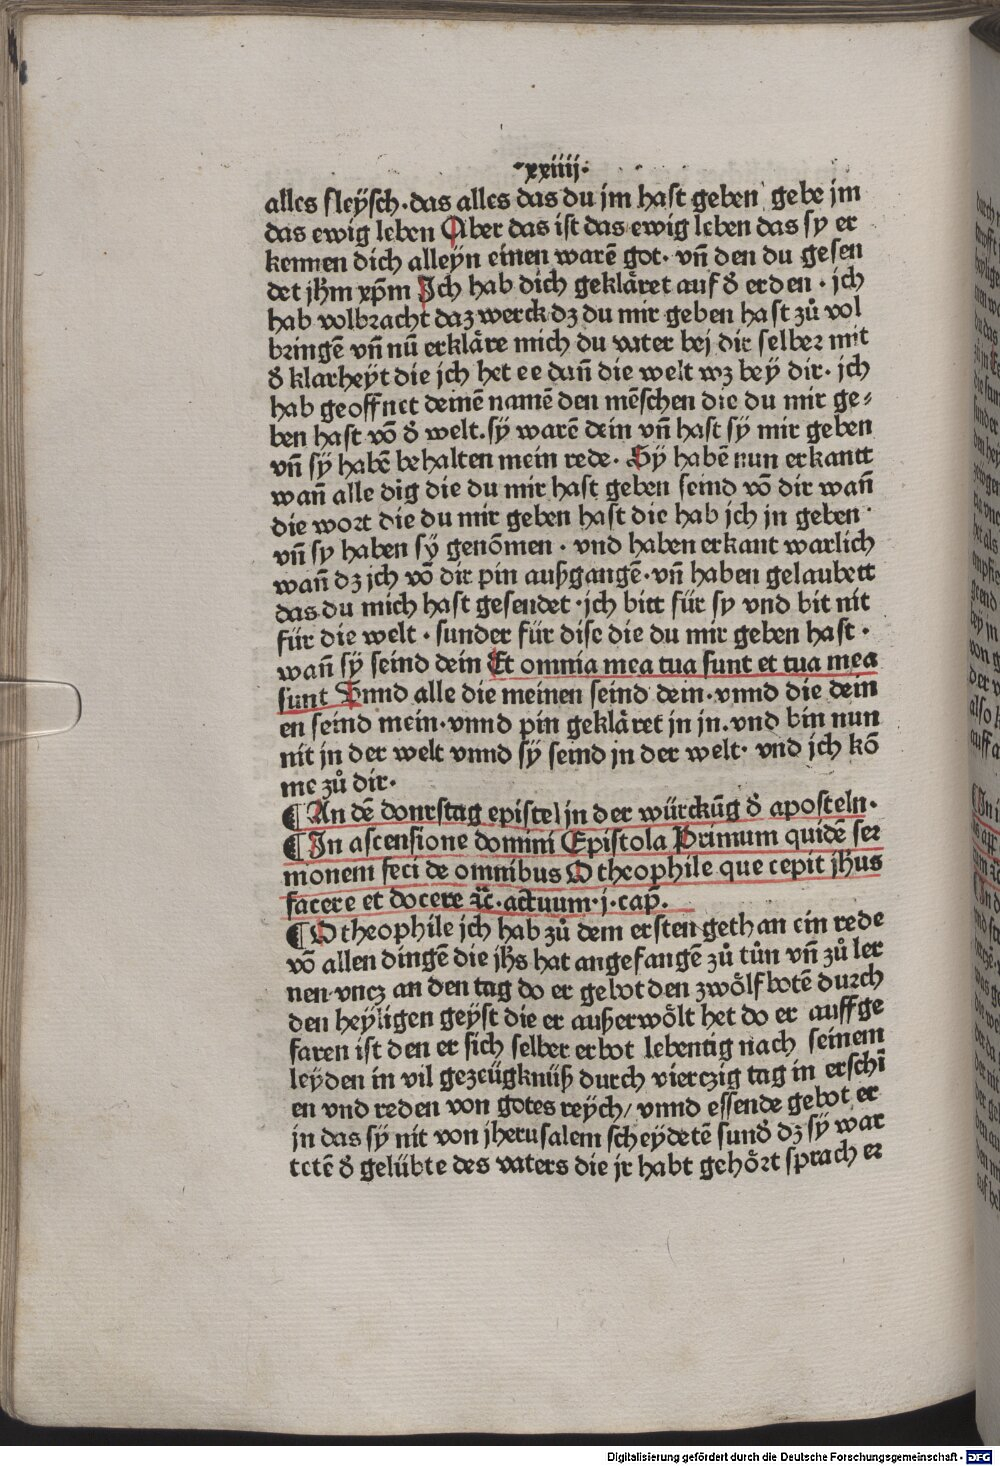 ·xxiiij·
alles fleÿsch·das alles das du jm hast geben gebe jm
das ewig leben Aber das ist das ewig leben das sy er
kennen dich alleÿn einen warē got· vn̄ den du gesen
det jh̄m xp̄m Jch hab dich gekläret auf d̕ erden · jch
hab volbracht daz werck dz du mir geben hast zů vol
bringē vn̄ nū erkläre mich du vater bej dir selber mit
d̕ klarheÿt die jch het ee dan̄ die welt wz beÿ dir· jch
hab geoffnet deinē namē den mēschen die du mir ge⸗
ben hast vō d̕ welt.sÿ warē dein vn̄ hast sÿ mir geben
vn̄ sÿ habē behalten mein rede· Sÿ habē nun erkantt
wan̄ alle dig die du mir hast geben seind vō dir wan̄
die wort die du mir geben hast die hab jch jn geben·
vn̄ sy haben sÿ genōmen · vnd haben erkant warlich
wan̄ dz jch vō dir pin außgangē·vn̄ haben gelaubett
das du mich hast gesendet·jch bitt für sy vnd bit nit
für die welt · sunder für dise die du mir geben hast ·
wan̄ sÿ seind dein Et omnia mea tua sunt et tua mea
sunt Vnnd alle die meinen seind dein·vnnd die dein
en seind mein·vnnd pin gekläret jn jn.vnd bin nun
nit jn der welt vnnd sÿ seind jn der welt· vnd jch kō
me zů dir·
¶An dē donrstag epistel jn der würckūg d̕ aposteln·
¶Jn ascensione domini Epistola Primum quidē ser
monem feci de omnibus O theophile que cepit jh̄us
facere et docere ꝛc̄·actuum·j·cap̄.
¶O theophile jch hab zů dem ersten gethan ein rede
vō allen dingē die jh̄s hat angefangē zů tůn vn̄ zů ler
nen·vncz an den tag do er gebot den zwölfbotē durch
den heÿligen geÿst die er außerwölt het do er auffge
faren ist den er sich selber erbot lebentig nach seinem
leÿden in vil gezeügknüß durch vierczig tag in erschī
en vnd reden von gotes reÿch/ vnnd essende gebot er
jn das sÿ nit von jherusalem scheÿdetē sund̕ dz sÿ war
tetē d̕ gelübte des vaters die jr habt gehört sprach er
Digitalisierung gefördert durch die Deutsche Forschungsgemeinschaft - DFG